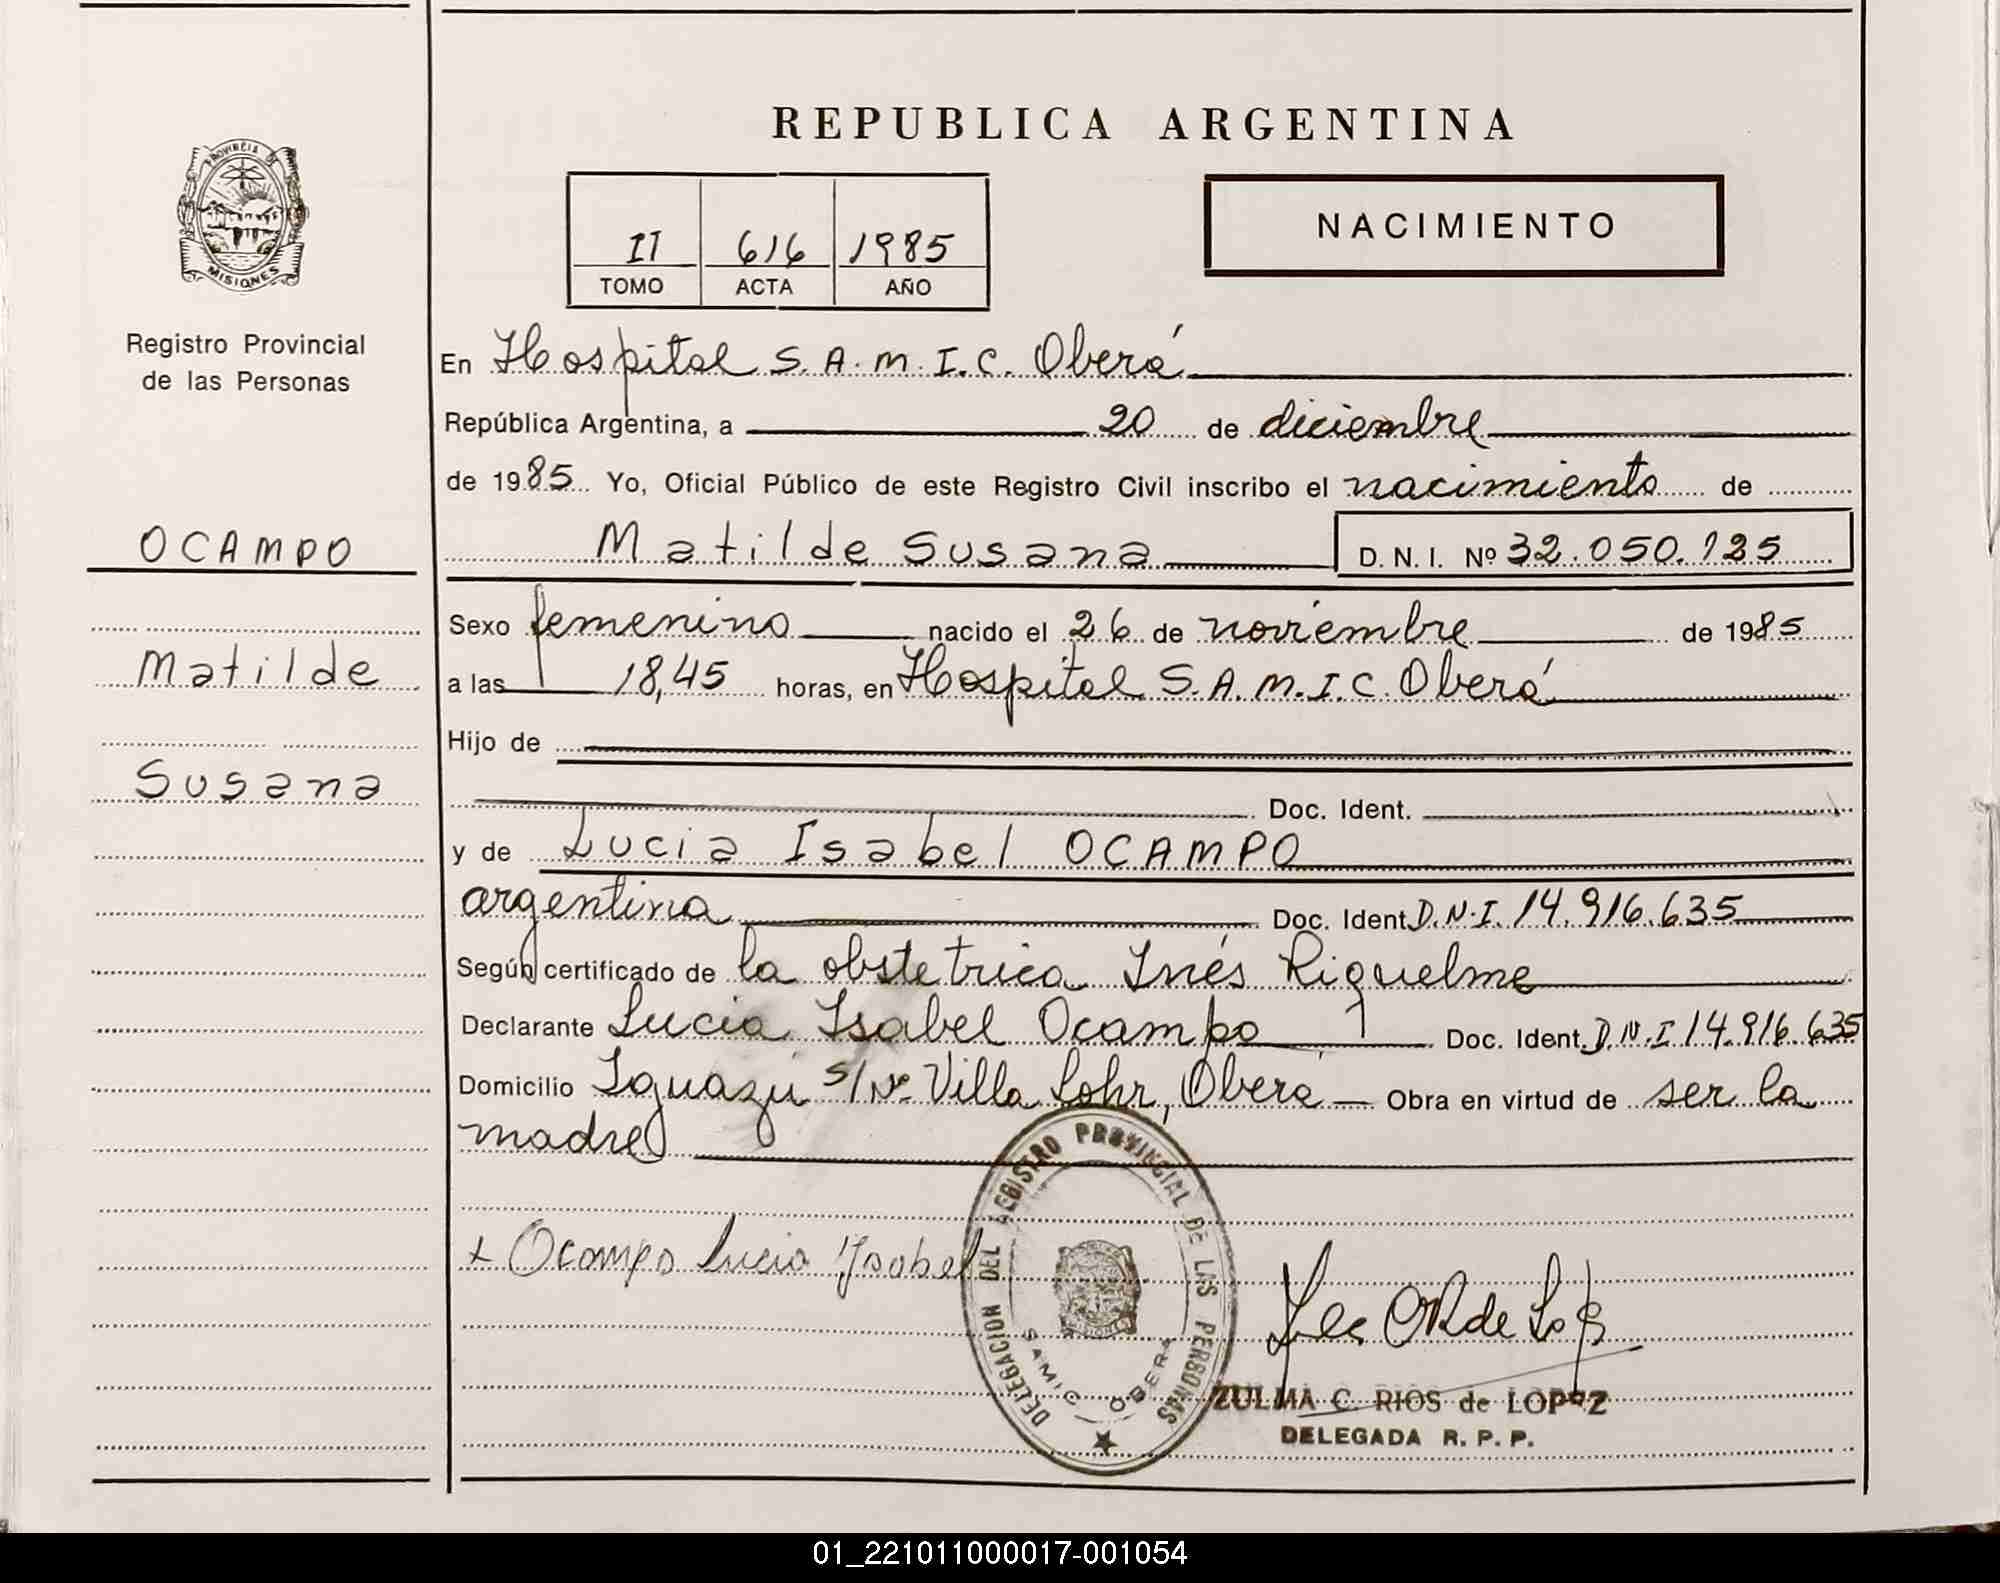 PROVINCIA DE
MISIONES
Registro Provincial
de las Personas
OCAMPO
Matilde
Susana
REPUBLICA ARGENTINA
NACIMIENTO
II 616 1985
TOMO ACTA AÑO
En Hospital S.A.M.I.C. Oberá
República Argentina, a 20 de diciembre
de 1985 Yo, Oficial Público de este Registro Civil inscribo el nacimiento de
Matilde Susana D. N. I. Nº 32.050.125
Sexo femenino nacido el 26 de noviembre de 1985
a las 18,45 horas, en Hospital S.A.M.I.C. Oberá
Hijo de
Doc. Ident.
y de Lucia Isabel OCAMPO
argentina Doc. Ident. D.N.I. 14.916.635
Según certificado de la obstetrica Inés Riquelme
Declarante Lucia Isabel Ocampo Doc. Ident. D.N.I 14.916.635
Domicilio Iguazú s/Nº Villa Lohr, Oberá Obra en virtud de ser la
madre
DELEGACION DEL REGISTRO PROVINCIAL DE LAS PERSONAS
SAMIC OBERA
+ Ocampo Lucia Ysabel
ZULMA C. RIOS de LOPEZ
DELEGADA R. P. P.
01_221011000017-001054